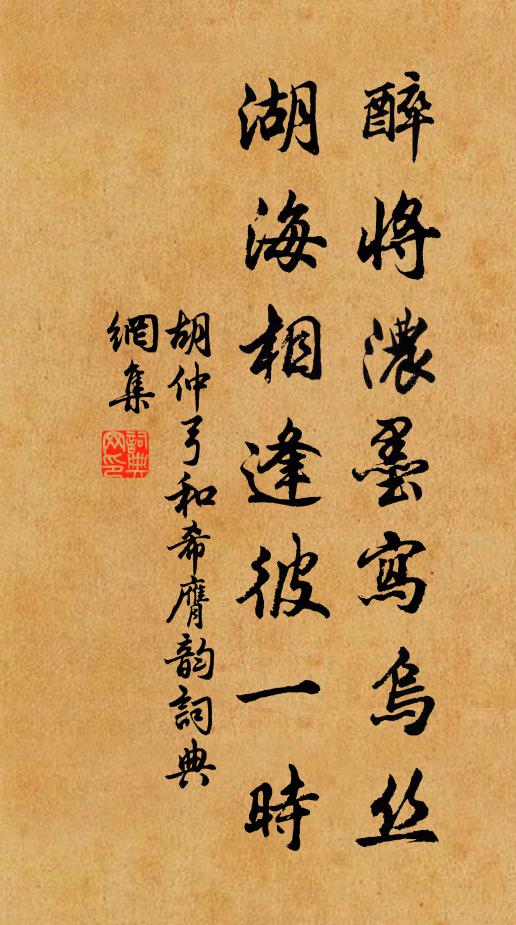 醉將濃墨寫烏丝
湖海相逢彼一時
胡仲弓和希膺韵詞典
網集
詞典网印